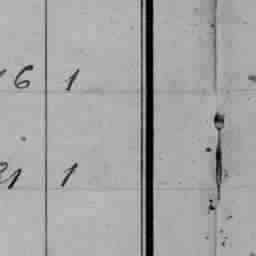 6 1
21 1